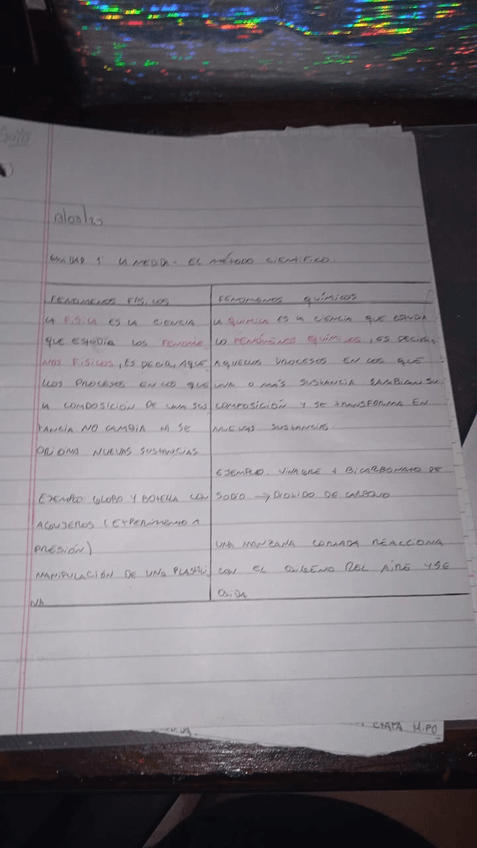 UNIDAD 1: LA MEDIDA. EL MÉTODO CIENTÍFICO.
FENOMENOS FISICOS
LA FISICA ES LA CIENCIA
QUE ESTUDIA LOS FENOME
NOS FISICOS, ES DECIR, AQUE
LLOS PROCESOS EN LOS QUE
LA COMPOSICIÓN DE UNA SUS
TANCIA NO CAMBIA NI SE
ORIGINA NUEVAS SUSTANCIAS
EJEMPLO: GLOBO Y BOTELLA CON
AGUJEROS (EXPERIMENTO
PRESIÓN)
MANIPULACIÓN DE UNA PLASTILI
NA
FENOMENOS QUÍMICOS
LA QUIMICA ES LA CIENCIA QUE ESTUDIA
LO FENÓMENOS QUIMICOS, ES DECIR,
AQUELLOS PROCESOS EN LOS QUE
UNA O MAS SUSTANCIA CAMBIAN SU
COMPOSICIÓN Y SE TRANSFORMA EN
NUEVAS SUSTANCIAS
EJEMPLO: VINAGRE + BICARBONATO DE
SODIO → DIOXIDO DE CARBONO
UNA MANZANA CORTADA REACCIONA
CON EL OXIGENO DEL AIRE Y SE
OXIDA